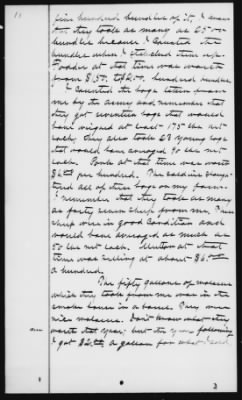 five hundred bundles of it, I know
that they took as many as 2500
bundles because I counted the
bundles when I stacked them up.
Fodder at that time was worth
from $1.50 to $2.00 hundred bundles
I counted the hogs taken from
me by the army and remember that
they got seventeen hogs that would
have weighed at least 175 lbs net
each; they also took 23 young hogs
that would have averaged 90 lbs net
each. Pork at that time was worth
per hundred. The soldiers slaugh-
tered all of these hogs on my farm.
I remember that they took as many
as forty seven sheep from me. These
sheep were in good condition and
would have averaged as much as
50 lbs net each. Mutton at that
time was selling at about $6.00
a hundred.
The fifty gallons of molasses
which they took from me was in the
smoke house in a barrel. They were
nice molasses. Don't know what they
worth that year; but the year following
I got a gallon for what I sold
3